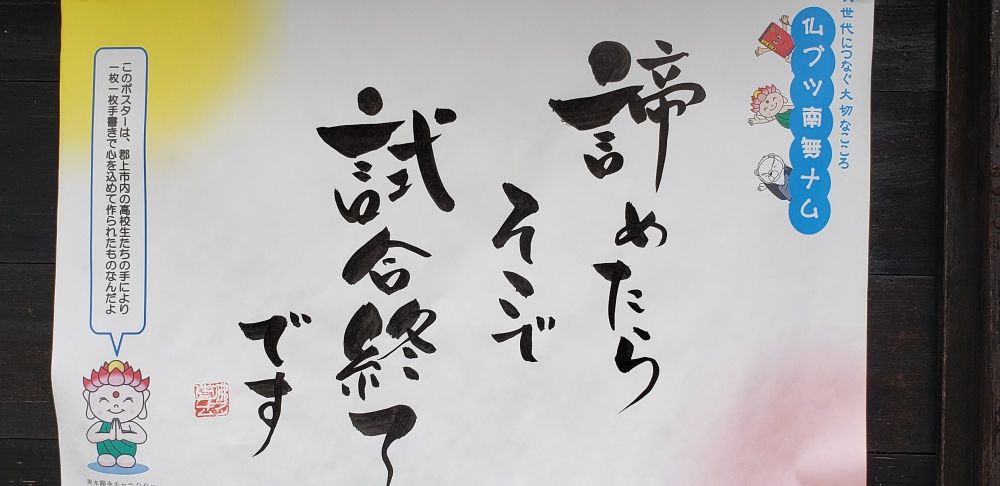 世代につなぐ大切なこころ
仏ブツ南無ナム
諦めたら
そこで
試合終了
です
このポスターは、郡上市内の高校生たちの手により
一枚一枚手書きで心を込めて作られたものなんだよ